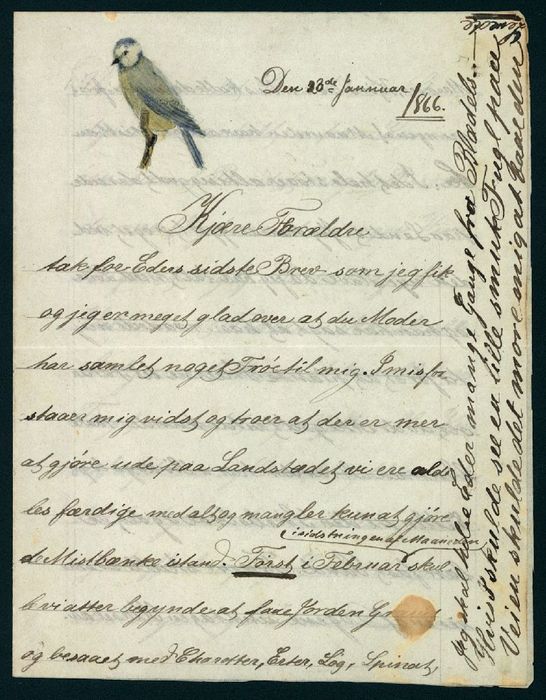 Den 23de Januar
1866.
Kjære Forældre
tak for Eders sidste Brev som jeg fik
og jeg er meget glad over at du Moder
har samlet noget Frøe til mig. I misfor
staaer mig vidst og troer at der er mer
at gjøre ude paa Landstædet vi ere alde
les færdige med alt og mangler kun at gjøre
i sidstningen af Maaneden
de Mistbænke istand. Först i Februar skul
le vi atter begynde at faae Jorden
og besaaet med Charotter, Erter, Løg, Spinat,
Jeg skal hilse Eder mange Gange fra Mandels.
Hvis I skulde see en lille smuk Fugl paa
Veien skulde det more mig at have den